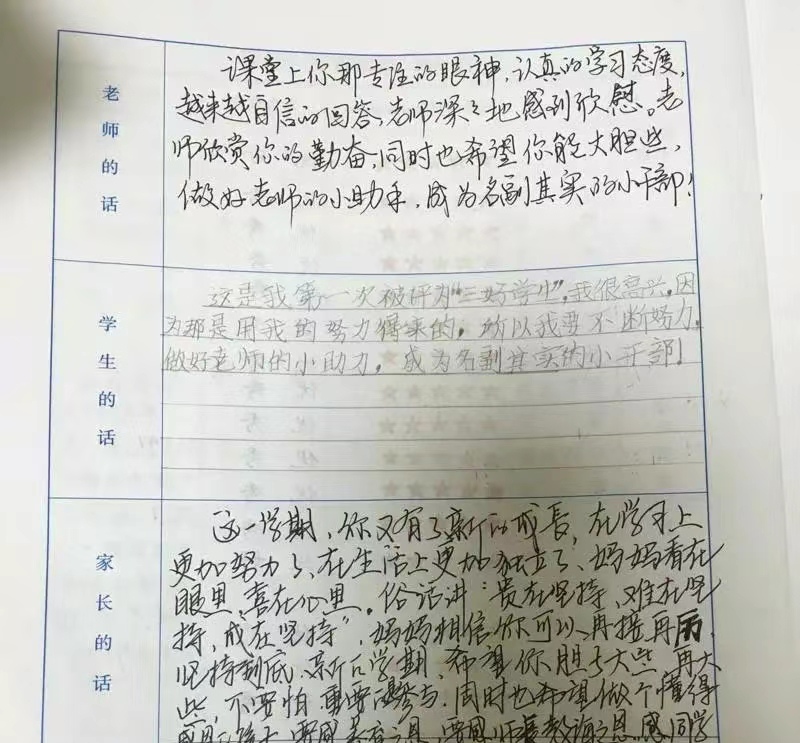 老师的话
课堂上你那专注的眼神,认真的学习态度,
越来越自信的回答,老师深深地感到欣慰。老
师欣赏你的勤奋,同时也希望你能大胆些,
做好老师的小助手,成为名副其实的小干部!
学生的话
这是我第一次被评为“三好学生”,我很高兴,因
为那是用我的努力得来的,所以我要不断努力,
做好老师的小助力,成为名副其实的小干部!
家长的话
这一学期,你又有了新的成长,在学习上
更加努力了、在生活上更加独立了、妈妈看在
眼里,喜在心里。俗话讲:“贵在坚持,难在坚
持,成在坚持”,妈妈相信你可以再接再厉,
坚持到底、新的学期,希望你胆子大些再大
些,不要怕,重要的参与.同时也希望做个懂得
感恩的孩子,要感父母之恩,要感师长教诲之恩,感同学